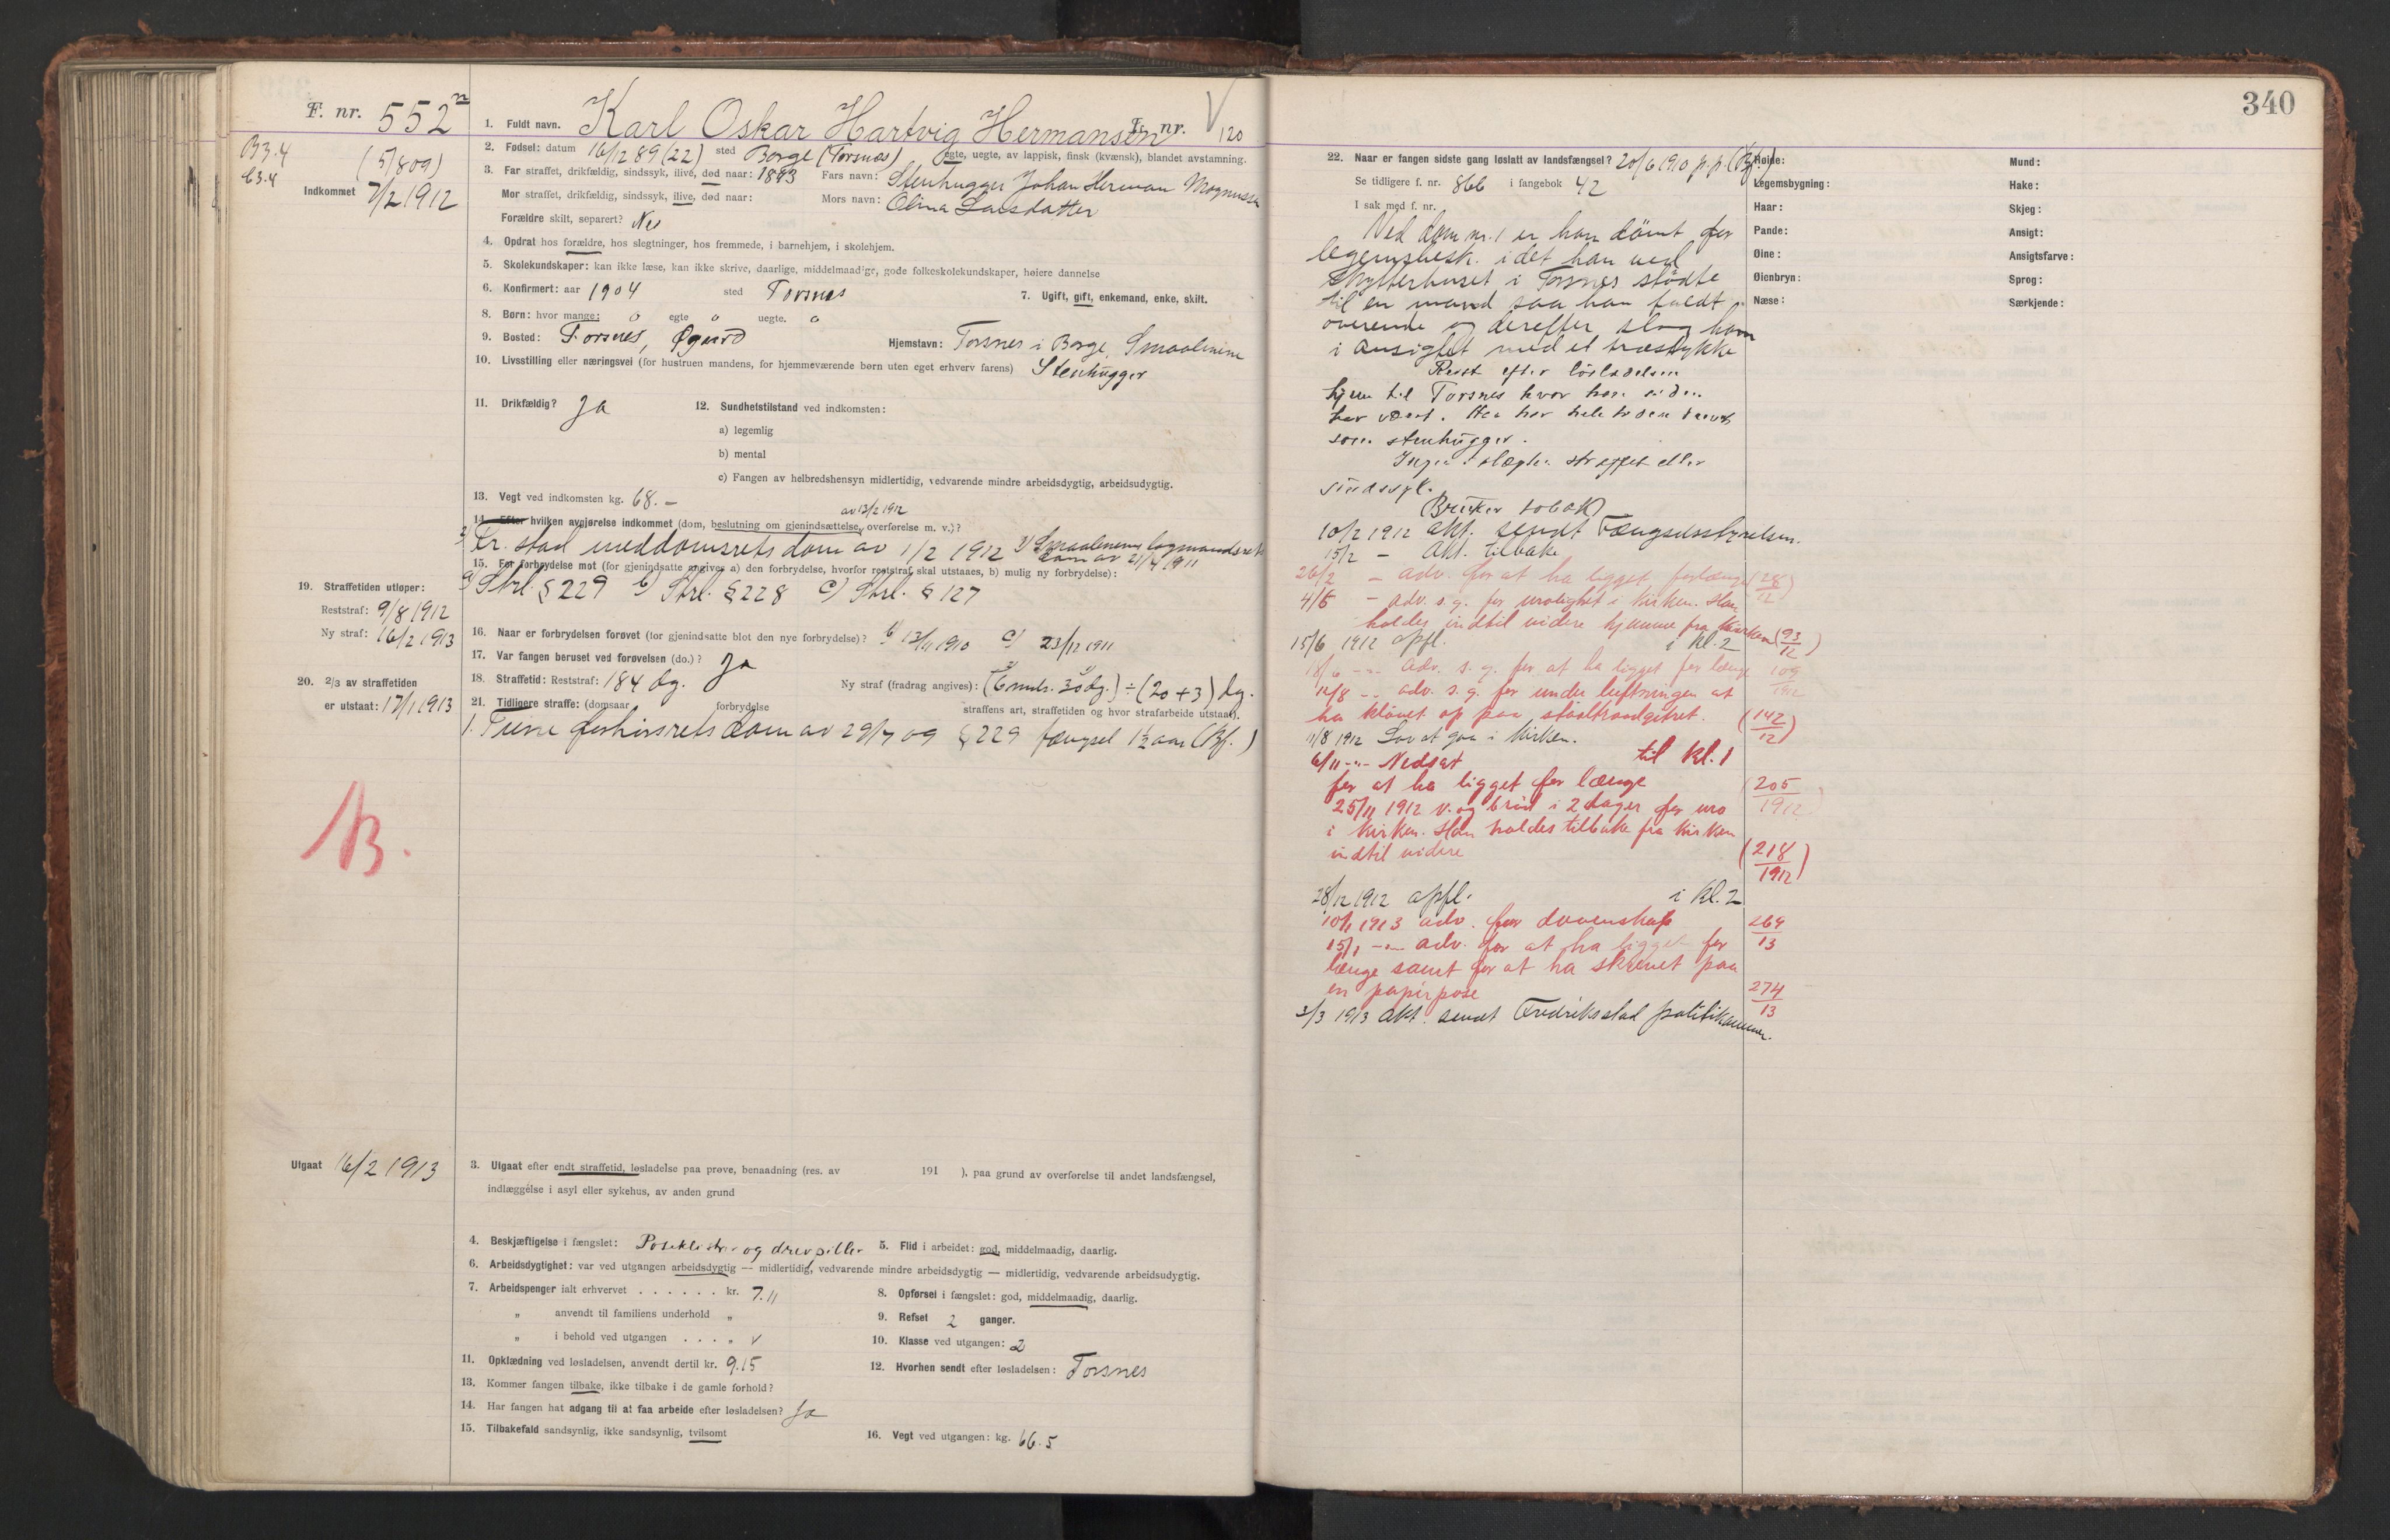 F. nr. 552
B3.4
C3.4
(5/809)
Indkommet 7/2 1912
1. Fuldt navn. Karl Oskar Hartvig Hermansen
Fr. nr. 120
2. Fødsel: datum 16/12 89 (22) sted Borge (Torsnæs) egte, uegte, av lappisk, finsk (kvænsk), blandet avstamning.
3. Far straffet, drikfældig, sindssyk, ilive, død naar: 1893 Fars navn: Stenhugger Johan Herman Magnussen
Mor straffet, drikfældig, sindssyk, ilive, død naar: Mors navn: Olina Larsdatter
Forældre skilt, separert? Nei
4. Opdrat hos forældre, hos slegtninger, hos fremmede, i barnehjem, i skolehjem.
5. Skolekundskaper: kan ikke læse, kan ikke skrive, daarlige, middelmaadige, gode folkeskolekundskaper, høiere dannelse
6. Konfirmert: aar 1904 sted Torsnes 7. Ugift, gift, enkemand, enke, skilt.
8. Børn: hvor mange: o egte o uegte. o
9. Bosted: Torsnes, Øgaard Hjemstavn: Torsnes i Borge, Smaalenene
10. Livsstilling eller næringsvei (for hustruen mandens, for hjemmeværende børn uten eget erhverv farens) Stenhugger
11. Drikfældig? Ja 12. Sundhetstilstand ved indkomsten:
a) legemlig
b) mental
c) Fangen av helbredshensyn midlertidig, vedvarende mindre arbeidsdygtig, arbeidsudygtig.
13. Vegt ved indkomsten kg. 68.–
av 13/2 1912
14. Efter hvilken avgjørelse indkommet (dom, beslutning om gjenindsættelse, overførelse m. v.)?
2) Fr. stad meddomsrets dom av 1/2 1912 3) Smaalenenes lagmandsrets
dom av 21/4 1911
15. For forbrydelse mot (for gjenindsatte angives a) den forbrydelse, hvorfor reststraf skal utstaaes, b) mulig ny forbrydelse):
a) Strl. § 229 b) Strl. § 228 c) Strl. § 127
19. Straffetiden utløper:
Reststraf: 9/8 1912
Ny straf: 16/2 1913
16. Naar er forbrydelsen forøvet (for gjenindsatte blot den nye forbrydelse)? b) 13/11 1910 c) 23/12 1911
17. Var fangen beruset ved forøvelsen (do.)? Ja
18. Straffetid: Reststraf: 184 dg. Ny straf (fradrag angives): (6 mnds. 30 dg.) ÷ (20 + 3) dg.
20. 2/3 av straffetiden
er utstaat: 17/1 1913
21. Tidligere straffe: (domsaar forbrydelse straffens art, straffetiden og hvor strafarbeide utstaat).
1. Tune forhørsrets dom av 29/7 09 § 229 fængsel 1½ aar (Bf.)
B.
Utgaat 16/2 1913
3. Utgaat efter endt straffetid, løsladelse paa prøve, benaadning (res. av 191 ), paa grund av overførelse til andet landsfængsel,
indlæggelse i asyl eller sykehus, av anden grund
4. Beskjæftigelse i fængslet: Poseklistrer og drevpiller 5. Flid i arbeidet: god, middelmaadig, daarlig.
6. Arbeidsdygtighet: var ved utgangen arbeidsdygtig — midlertidig, vedvarende mindre arbeidsdygtig — midlertidig, vedvarende arbeidsudygtig.
7. Arbeidspenger ialt erhvervet . . . . . . kr. 7.11 8. Opførsel i fængslet: god, middelmaadig, daarlig.
„ anvendt til familiens underhold „ 9. Refset 2 ganger.
„ i behold ved utgangen . . . „ v 10. Klasse ved utgangen: 2
11. Opklædning ved løsladelsen, anvendt dertil kr. 9.15 12. Hvorhen sendt efter løsladelsen: Torsnes
13. Kommer fangen tilbake, ikke tilbake i de gamle forhold?
14. Har fangen hat adgang til at faa arbeide efter løsladelsen? Ja
15. Tilbakefald sandsynlig, ikke sandsynlig, tvilsomt 16. Vegt ved utgangen: kg. 66.5
340
22. Naar er fangen sidste gang løslatt av landsfængsel? 20/6 1910 p.p. (Bf.)
Se tidligere f. nr. 866 i fangebok 42
I sak med f. nr.
Ved dom nr. 1 er han dömt for
legemsbesk. idet han ved
Skytterhuset i Torsnes stödte
til en mand saa han faldt
overende og derefter slog ham
i ansigtet med et træstykke
Reist efter lösladelsen
hjem til Torsnes hvor han siden
har været. Han har hele tiden
som stenhugger.
Ingen i slægten straffet eller
sindssyk.
Bruker tobak
10/2 1912 akt. sendt Fængselsstyrelsen.
15/2 – akt. tilbake
26/2 – adv. for at ha ligget forlænge (28/12)
4/5 – adv. s. g. for urolighet i kirken. Han
holdes indtil videre hjemme fra kirken (93/12)
15/6 1912 opfl. i kl. 2
18/6 –„– adv. s. g. for at ha ligget for længe 109/1912
12/8 –„– adv. s. g. for under luftningen at
ha klövet op paa staaltraadgitret. (142/12)
11/8 1912 Lov at gaa i kirken.
6/11 –„– Nedsat til kl. 1
for at ha ligget for længe (205/1912)
25/11 1912 v. og bröd i 2 dager for uro
i kirken. Han holdes tilbake fra kirken
indtil videre (218/1912)
28/12 1912 opfl. i kl. 2
10/1 1913 adv. for dovenskap 269/13
15/1 –„– adv. for at ha ligget for
længe samt for at ha skrevet paa
en papirpose 274/13
3/3 1913 akt. sendt Fredriksstad politikammer.
Høide:
Legemsbygning:
Haar:
Pande:
Øine:
Øienbryn:
Næse:
Mund:
Hake:
Skjeg:
Ansigt:
Ansigtsfarve:
Sprog:
Særkjende: